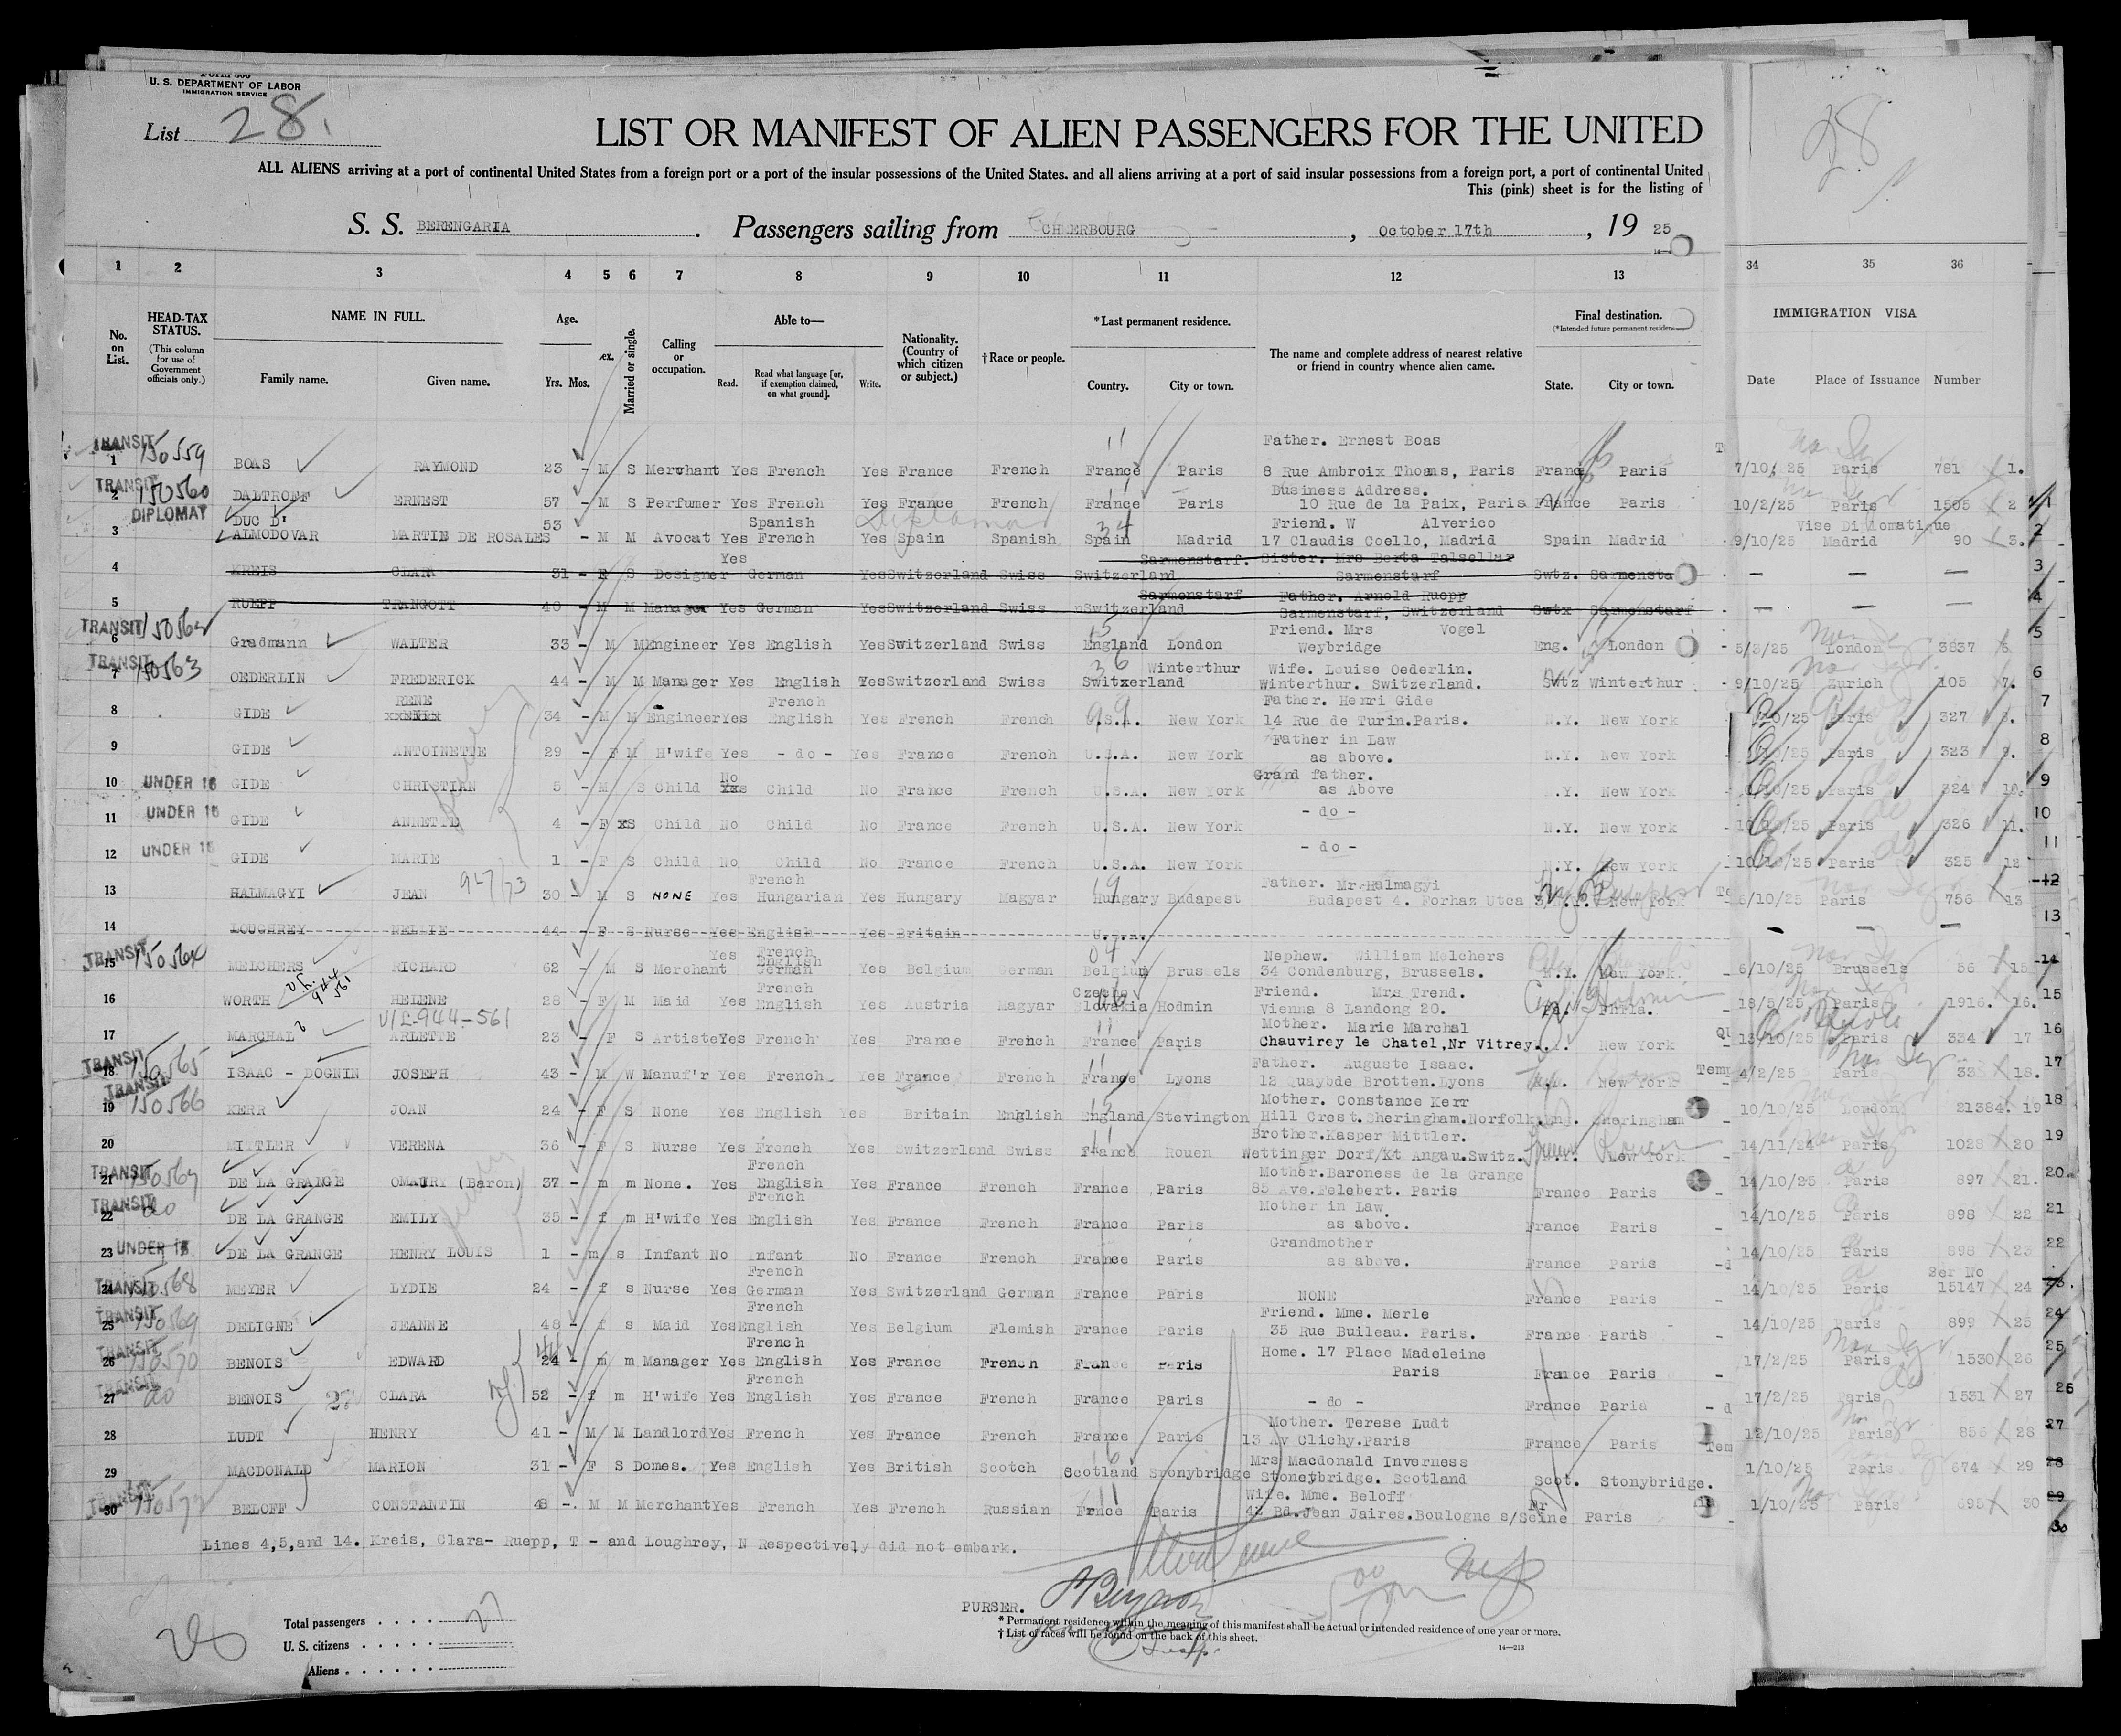 Form 500
U. S. DEPARTMENT OF LABOR
IMMIGRATION SERVICE
List 28.
28
LIST OR MANIFEST OF ALIEN PASSENGERS FOR THE UNITED
ALL ALIENS arriving at a port of continental United States from a foreign port or a port of the insular possessions of the United States. and all aliens arriving at a port of said insular possessions from a foreign port, a port of continental United
This (pink) sheet is for the listing of
S. S. BERENGARIA . Passengers sailing from CHERBOURG , October 17th , 19 25
1 2 3 4 5 6 7 8 9 10 11 12 13 34 35 36
No. on List. HEAD-TAX STATUS. (This column for use of Government officials only.) NAME IN FULL. Family name. Given name. Age. Yrs. Mos. Sex. Married or single. Calling or occupation. Able to— Read. Read what language [or, if exemption claimed, on what ground]. Write. Nationality. (Country of which citizen or subject.) †Race or people. *Last permanent residence. Country. City or town. The name and complete address of nearest relative or friend in country whence alien came. Final destination. (*Intended future permanent residence) State. City or town. IMMIGRATION VISA Date Place of Issuance Number
Father. Ernest Boas
TRANSIT 150559 1 BOAS RAYMOND 23 - M S Merchant Yes French Yes France French France Paris 8 Rue Ambroix Thoams, Paris France Paris 7/10/25 Paris 781 1.
Business Address.
TRANSIT 150560 2 DALTROFF ERNEST 57 - M S Perfumer Yes French Yes France French France Paris 10 Rue de la Paix, Paris France Paris 10/2/25 Paris 1505 2
DIPLOMAT DUC D' 53 Spanish Diplomat 34 Friend. W Alverico Vise Diplomatique
3 ALMODOVAR MARTIN DE ROSALES - M M Avocat Yes French Yes Spain Spanish Spain Madrid 17 Claudis Coello, Madrid Spain Madrid 9/10/25 Madrid 90 3.
Yes Sarmenstarf. Sister. Mrs Berta Talsellar
4 KREIS CLARA 31 - F S Designer German Yes Switzerland Swiss Switzerland Sarmenstarf Swtz. Sarmensta
Sarmenstarf Father. Arnold Ruepp
5 RUEPP TRANGOTT 40 - M M Manager Yes German Yes Switzerland Swiss Switzerland Sarmenstarf, Switzerland Swtx Sarmenstarf
Friend. Mrs Vogel
TRANSIT 6 Gradmann WALTER 33 - M M Engineer Yes English Yes Switzerland Swiss England London Weybridge Eng. London 5/3/25 London 3837 6
36 Winterthur Wife. Louise Oederlin.
TRANSIT 150563 7 OEDERLIN FREDERICK 44 - M M Manager Yes English Yes Switzerland Swiss Switxerland Winterthur. Switzerland. Swtz Winterthur 9/10/25 Zurich 105 7.
RENE French 99 Father. Henri Gide
8 GIDE 34 - M M Engineer Yes English Yes French French U.S.A. New York 14 Rue de Turin.Paris. N.Y. New York 10/25 Paris 327 8.
Father in Law
9 GIDE ANTOINETTE 29 - F M H'wife Yes - do - Yes France French U.S.A. New York as above. N.Y. New York 10/25 Paris 323 9.
No Grand father.
10 UNDER 16 GIDE CHRISTIAN 5 - M S Child Child No France French U.S.A. New York as Above N.Y. New York 10/25 Paris 324 10.
11 UNDER 16 GIDE ANNETTE 4 - F xS Child No Child No France French U.S.A. New York - do - N.Y. New York 10/10/25 Paris 326 11.
12 UNDER 16 GIDE MARIE 1 - F S Child No Child No France French U.S.A. New York - do - N.Y. New York 10/10/25 Paris 325 12
927/73 French 19 Father. Mr.Halmagyi
13 HALMAGYI JEAN 30 - M S NONE Yes Hungarian Yes Hungary Magyar Hungary Budapest Budapest 4. Forhaz Utca 3 N.Y. New York 6/10/25 Paris 756 13
14 LOUGHREY NELLIE 44 - F S Nurse Yes English Yes Britain U.S.A.
Yes French English 04 Nephew. William Melchers
TRANSIT 150564 15 MELCHERS RICHARD 62 - M S Merchant German Yes Belgium German Belgium Brussels 34 Condenburg, Brussels. N.Y. New York. 6/10/25 Brussels 56 15
French Czecho Friend. Mrs Trend.
16 WORTH HELENE 28 - F M Maid Yes English Yes Austria Magyar Slovakia Hodmin Vienna 8 Landong 20. Pa. Phila. 18/5/25 Paris 1916. 16.
V/L-944-561 11 Mother. Marie Marchal
17 MARCHAL ARLETTE 23 - F S Artiste Yes French Yes France French France Paris Chauvirey le Chatel,Nr Vitrey... New York 13/10/25 Paris 334 17
11 Father. Auguste Isaac.
TRANSIT 150565 18 ISAAC - DOGNIN JOSEPH 43 - M W Manuf'r Yes French Yes France French France Lyons 12 Quaybde Brotten.Lyons N.Y. New York Temp 4/2/25 Paris 335 18.
Mother. Constance Kerr
TRANSIT 150566 19 KERR JOAN 24 - F S None Yes English Yes Britain English England Stevington Hill Crest.Sheringham.Norfolk.Eng. Sheringham 10/10/25 London 21384. 19
Brother.Kasper Mittler.
20 MITTLER VERENA 36 - F S Nurse Yes French Yes Switzerland Swiss France Rouen Wettinger Dorf/Kt Angau.Switz. N.Y. New York 14/11/24 Paris 1028 20
French Mother.Baroness de la Grange
TRANSIT 21 DE LA GRANGE OMAURY (Baron) 37 - m m None. Yes English Yes France French France Paris 85 Ave.Felebert. Paris France Paris 14/10/25 Paris 897 21.
French Mother in Law
TRANSIT do 22 DE LA GRANGE EMILY 35 - f m H'wife Yes English Yes France French France Paris as above. France Paris 14/10/25 Paris 898 22
Grandmother
23 UNDER 16 DE LA GRANGE HENRY LOUIS 1 - m s Infant No Infant No France French France Paris as above. France Paris 14/10/25 Paris 898 23
French Ser No
TRANSIT 150568 24 MEYER LYDIE 24 - f s Nurse Yes German Yes Switzerland German France Paris NONE France Paris 14/10/25 Paris 15147 24
French Friend. Mme. Merle
TRANSIT 150569 25 DELIGNE JEANNE 48 - f s Maid Yes English Yes Belgium Flemish France Paris 35 Rue Buileau. Paris. France Paris 14/10/25 Paris 899 25
French Home. 17 Place Madeleine
TRANSIT 150570 26 BENOIS EDWARD 24 - m m Manager Yes English Yes France French France Paris Paris France Paris 17/2/25 Paris 1530 26
French
TRANSIT do 27 BENOIS CLARA 52 - f m H'wife Yes English Yes France French France Paris - do - France Paris 17/2/25 Paris 1531 27
Mother. Terese Ludt
28 LUDT HENRY 41 - M M Landlord Yes French Yes France French France Paris 13 Av Clichy.Paris France Paris Tem 12/10/25 Paris 856 28
Mrs Macdonald Inverness
29 MACDONALD MARION 31 - F S Domes. Yes English Yes British Scotch Scotland Stonybridge Stoneybridge. Scotland Scot. Stonybridge. 1/10/25 Paris 674 29
Wife. Mme. Beloff
TRANSIT 30 BELOFF CONSTANTIN 48 -. M M Merchant Yes French Yes French Russian Frnce Paris 42 Bd.Jean Jaires.Boulogne s/Seine Fr Paris 1/10/25 Paris 695 30
Lines 4,5,and 14. Kreis, Clara- Ruepp, T - and Loughrey, N Respectively did not embark.
PURSER.
Total passengers . . . . 27
U. S. citizens . . . . .
Aliens . . . . . .
* Permanent residence within the meaning of this manifest shall be actual or intended residence of one year or more.
† List of races will be found on the back of this sheet.
14—213